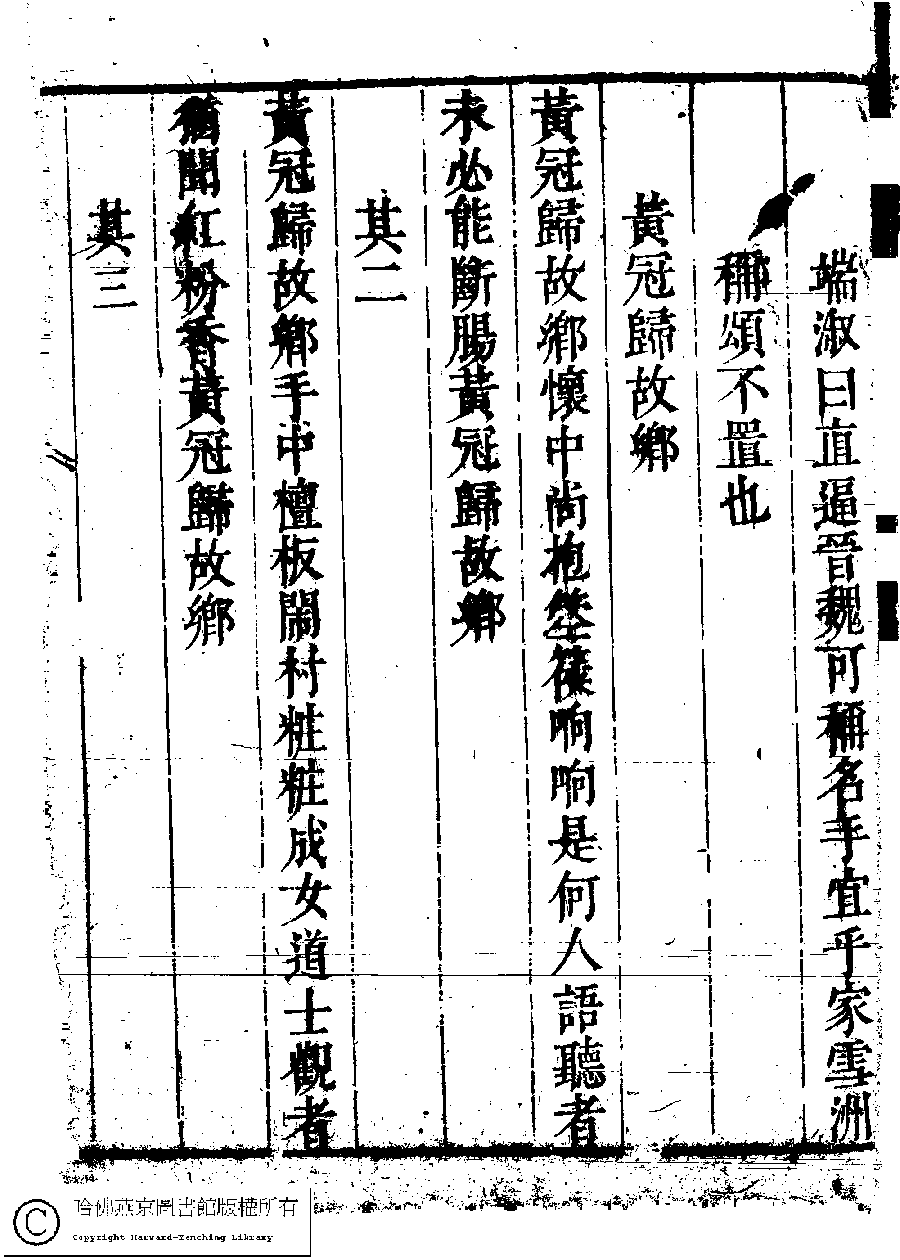 端淑曰直逼晉魏可稱名手宜乎家雪洲
稱頌不置也
黃冠歸故鄉
黃冠歸故鄉懷中尚抱箜篌响响是何人語聽者
未必能斷腸黃冠歸故鄉
其二
黃冠歸故鄉手中檀板鬧村粧粧成女道士觀者
猶聞紅粉香黃冠歸故鄉
其三
哈佛燕京圖書館版權所有
Copyright Harvard-Yenching Library